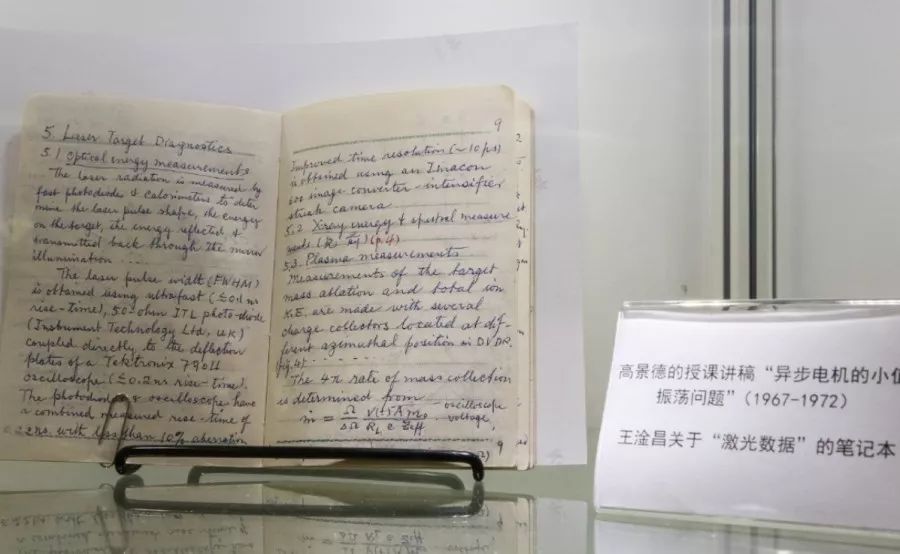 5. Laser Target Diagnostics
5.1 Optical energy measurements
The laser radiation is measured by
fast photodiode & calorimeters to deter
mine the laser pulse shape, the energy
on the target, the energy reflected &
transmitted back through the mirror
illumination .....
The laser pulse width (FWHM)
is obtained using ultrafast (≤0.1 ns
rise-time), 50-ohm ITL photo-diode
(Instrument Technology Ltd, U.K)
coupled directly to the deflection
plates of a Tektronix 7904
oscilloscope (≤0.2ns rise-time).
The photodiode & oscilloscope have
a combined measured rise-time of
0.22ns. with less than 10% aberration
9
Improved time resolution (~10 ps)
is obtained using an Imacon
image-converter-intensifier
streak camera.
5.2 X-ray energy & spectral measure
ments (p.4)
5.3. Plasma measurements
Measurements of the target
mass ablation and total ion
K.E. are made with several
charge collectors located at dif-
ferent azimuthal position in
fig.4)
The 4π rate of mass collection
is determined from
oscilloscope
voltage
9
高景德的授课讲稿“异步电机的小值
振荡问题”（1967-1972）
王淦昌关于“激光数据”的笔记本